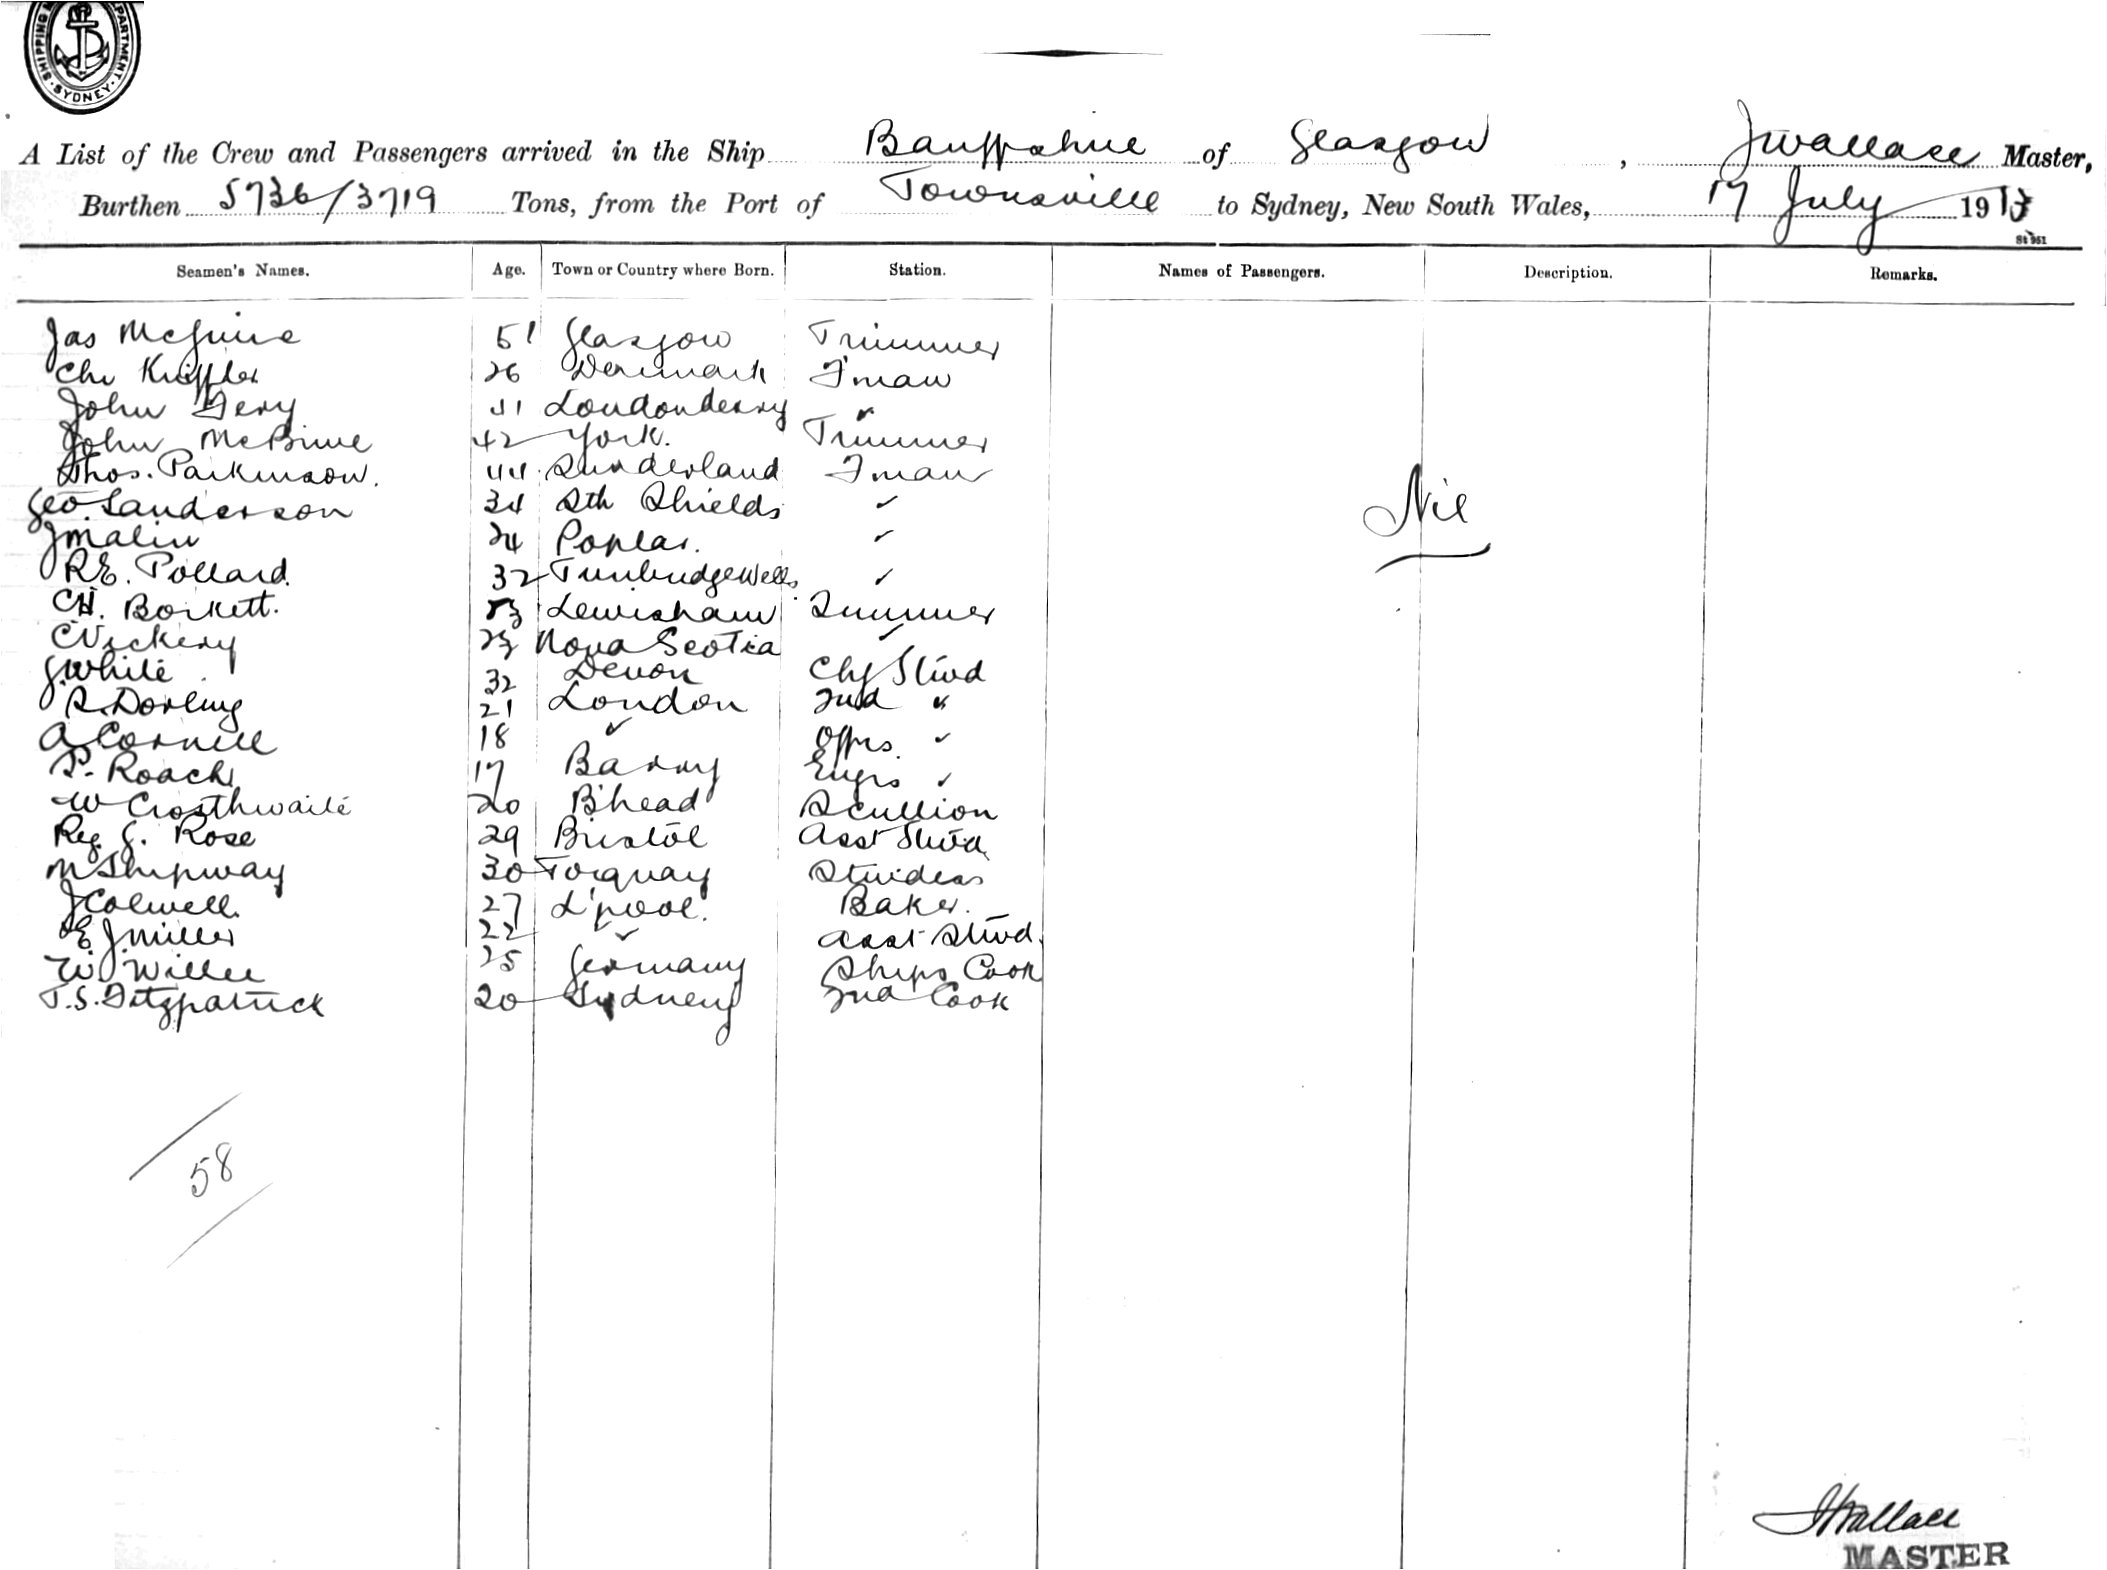 SHIPPING DEPARTMENT. SYDNEY.
A List of the Crew and Passengers arrived in the Ship Banffshire of Glasgow, J Wallace Master,
Burthen 5736/3719 Tons, from the Port of Townsville to Sydney, New South Wales, 17 July 1913
St 951
Seamen's Names. Age. Town or Country where Born. Station. Names of Passengers. Description. Remarks.
Jas McGuire 51 Glasgow Trimmer
Chr 26 Denmark F'man
John 41 Londonderry "
John McBirne 42 York. Trimmer
Thos. Parkinson. 44 Sunderland F'man
Geo. Sanderson 34 Sth Shields "
J Malin 24 Poplar. "
R.E. Pollard. 32 Tunbridge Wells "
C.H. Borkett. 53 Lewisham Trimmer
C Vickery 23 Nova Scotia "
J. White 32 Devon Chf Stwd
S. Dorling 21 London 2nd "
A Cornell 18 " Offrs "
P. Roach 17 Barry Engrs "
W Crosthwaite 20 B'head Scullion
Reg J. Rose 29 Bristol Asst Stwd
M Shipway 30 Torquay Stwdess
J Colwell. 27 L'pool. Baker.
E J. Miller 22 " Asst Stwd.
W. Willee 25 Germany Ships Cook
T.S. Fitzpatrick 20 Sydney 2nd Cook
Nil
58
J Wallace
MASTER